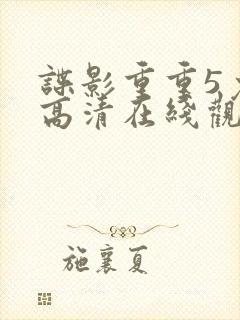 諜影重重5
高清在綫觀
施襄夏